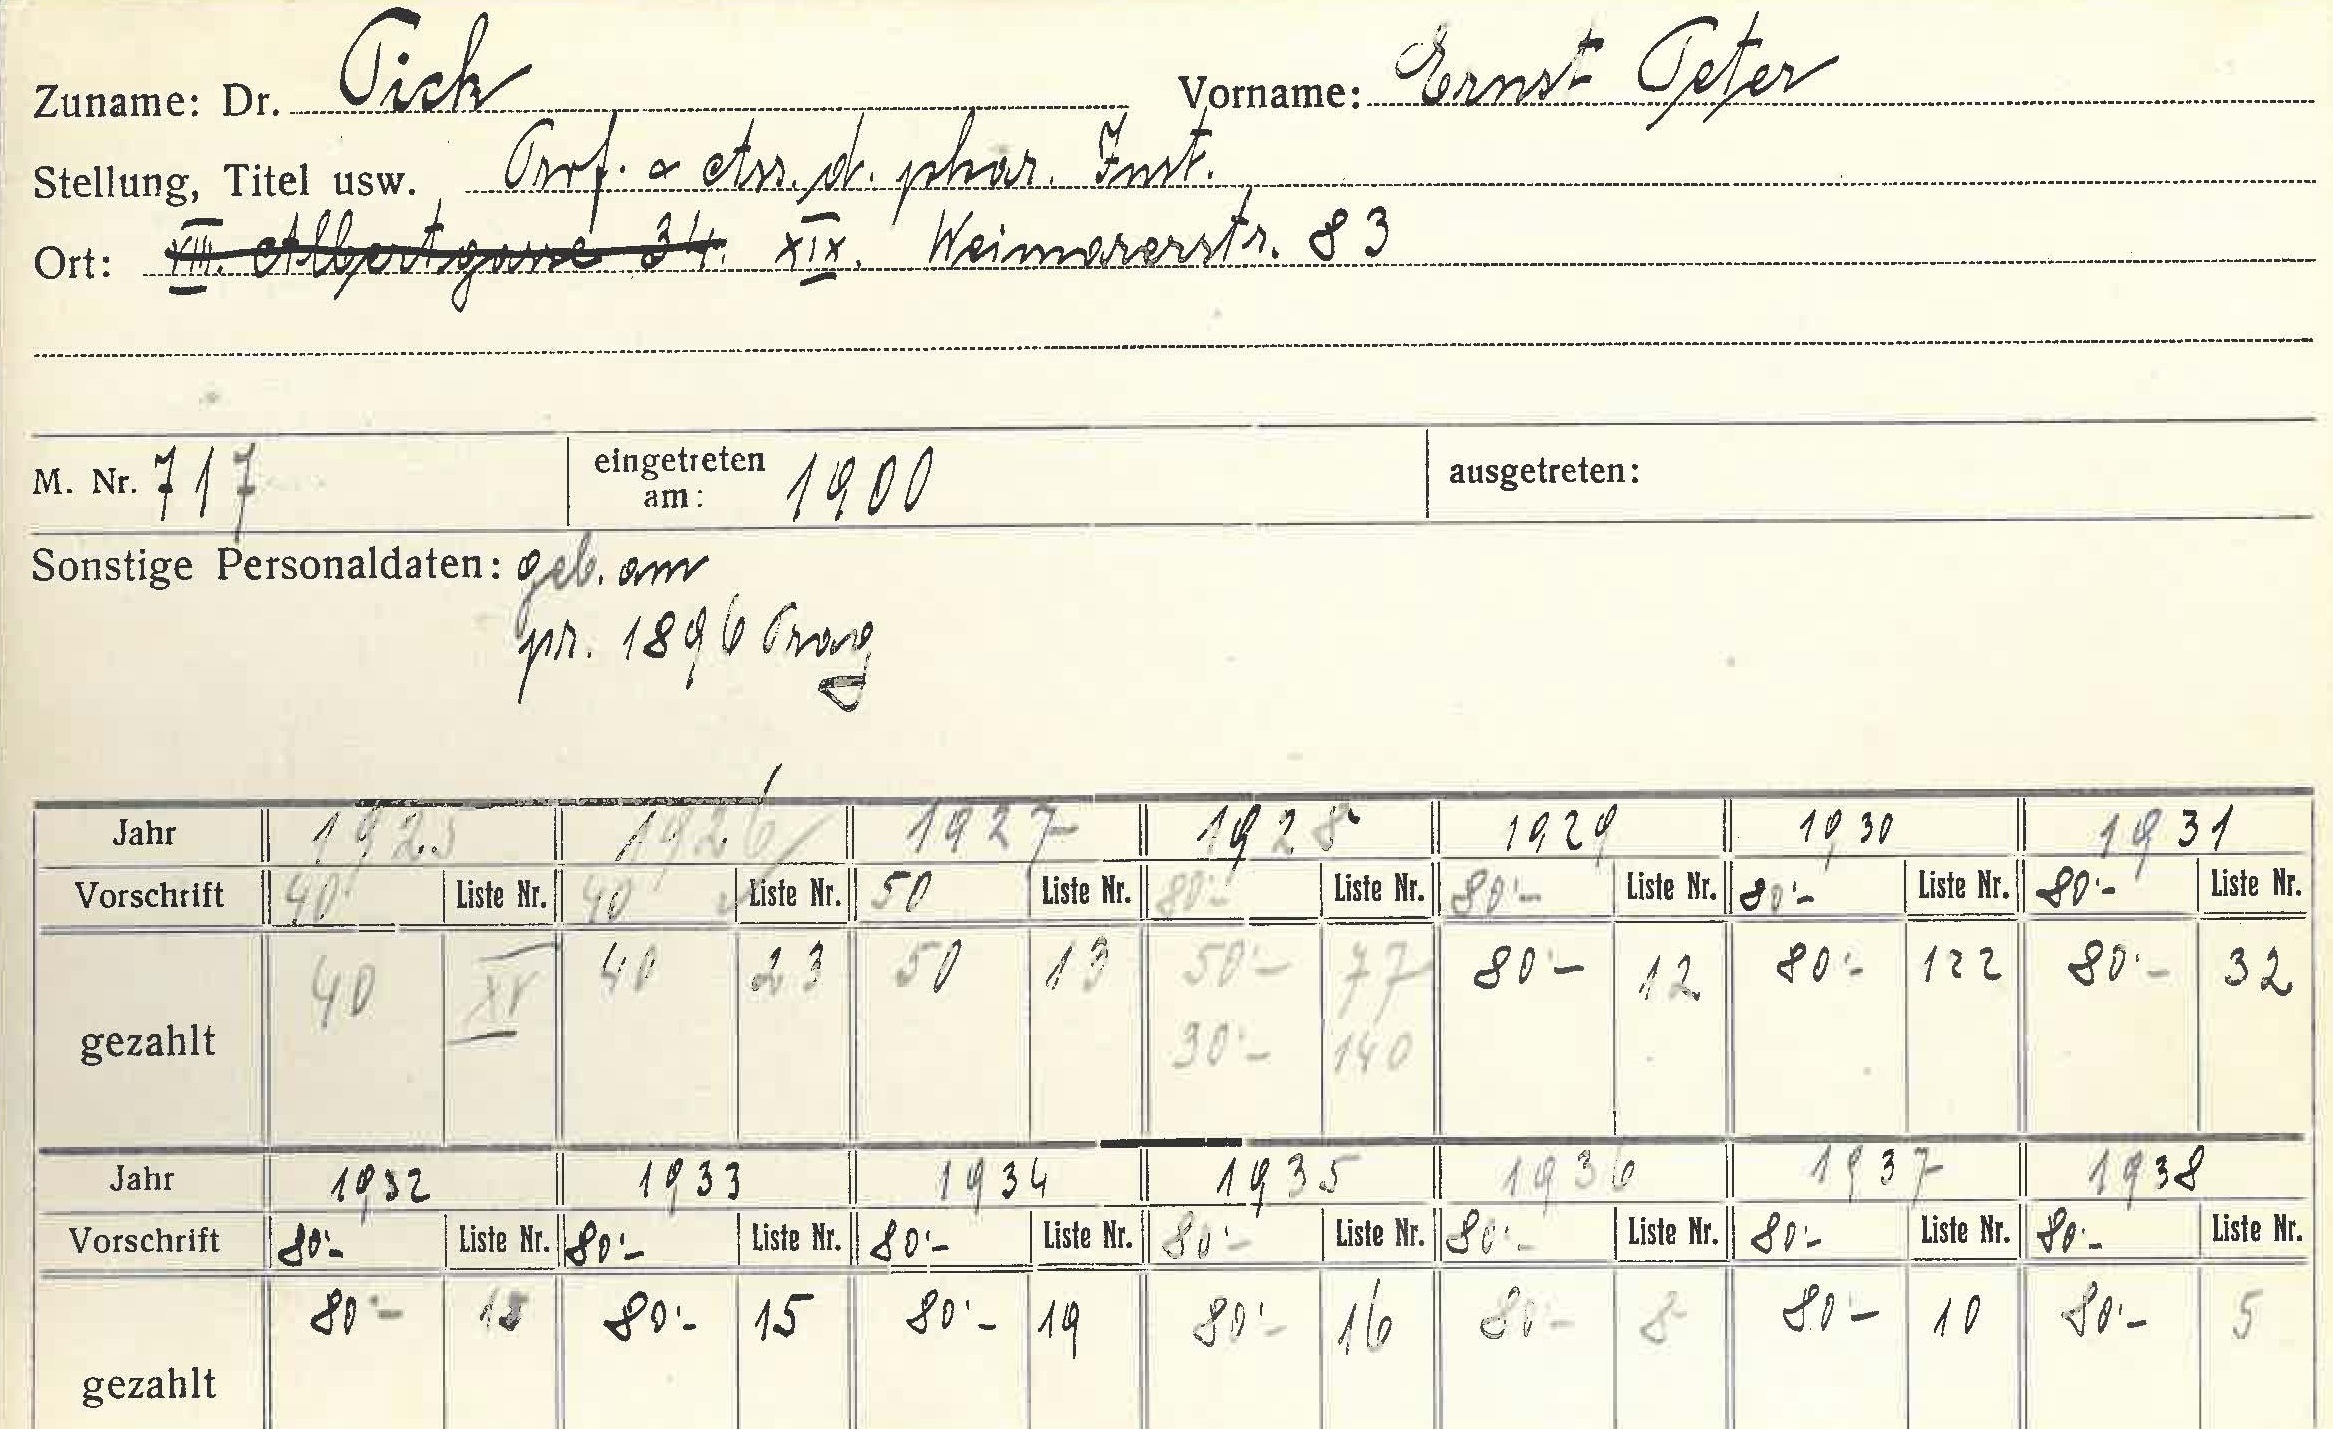 Zuname: Dr. Pick Vorname: Ernst Peter
Stellung, Titel usw. Prof. & Ass. d. phar. Inst.
Ort: VIII. Albertgasse 34. XIX. Weimarerstr. 83
M. Nr. 717 eingetreten am: 1900 ausgetreten:
Sonstige Personaldaten: geb. am
pr. 1896 Prag
Jahr 1925 1926 1927 1928 1929 1930 1931
Vorschrift 40 Liste Nr. 40 Liste Nr. 50 Liste Nr. 80·- Liste Nr. 80·- Liste Nr. 80·- Liste Nr. 80·- Liste Nr.
gezahlt 40 XV 40 23 50 13 50·- 77 80- 12 80·- 122 80·- 32
30·- 140
Jahr 1932 1933 1934 1935 1936 1937 1938
Vorschrift 80·- Liste Nr. 80·- Liste Nr. 80·- Liste Nr. 80·- Liste Nr. 80·- Liste Nr. 80·- Liste Nr. 80·- Liste Nr.
gezahlt 80·- 80·- 15 80·- 19 80·- 16 80·- 8 80·- 10 80·- 5